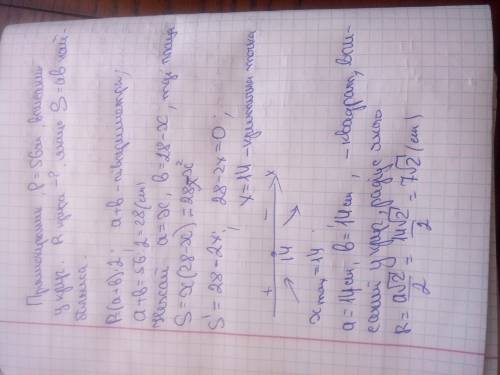 Прямокутник, P=56см, вписаний
у круг. R круга -?, якщо S=ab най-
більша.
P=(a+b)·2 a+b - півпериметр;
a+b=56:2=28(см)
Нехай a=x, b=28-x, тоді площа
S=x(28-x)=28x-x²
S'=28-2x; 28-2x=0;
x=14 - критична точка
+ 14 - x
x max=14.
a=14см, b=14см, - квадрат, впи-
саний у круг, радіус якого
R=a√2/2=14√2/2=7√2(см)